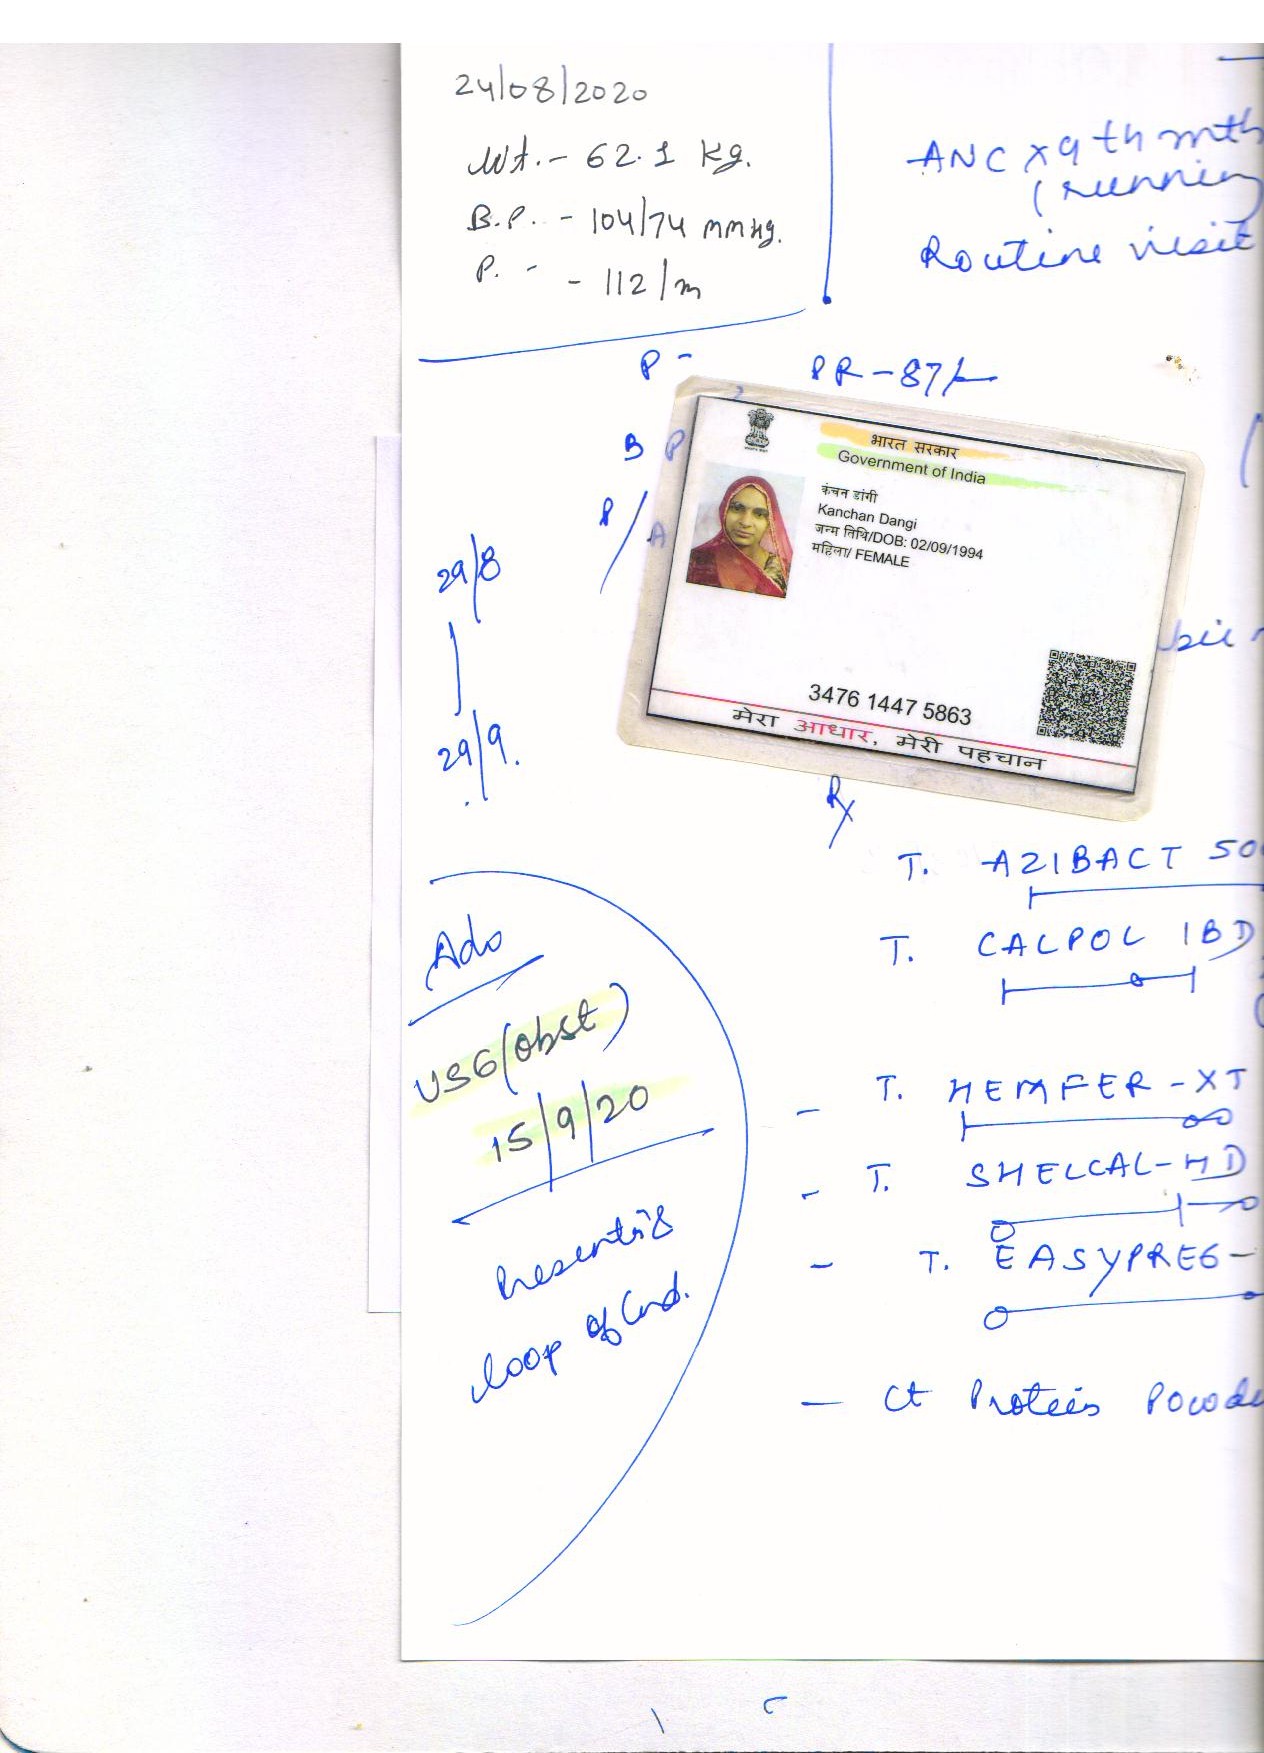 24/08/2020
Wt. - 62.1 kg.
B.P. - 104/74 mmHg.
P. - - 112/m
ANC x 9th mth
(running
Routine visit
P - PR - 87/
B P
P/A
29/8
29/9.
भारत सरकार
Government of India
कंचन डांगी
Kanchan Dangi
जन्म तिथि/DOB: 02/09/1994
महिला/ FEMALE
3476 1447 5863
मेरा आधार, मेरी पहचान
Rx
T. AZIBACT 50
T. CALPOL
- T. HEMFER - XT
- T. SHELCAL - HD
- T. EASYPREG -
- Ct Protein Powde
Adv
USG (obst)
15/9/20
loop of Cord.